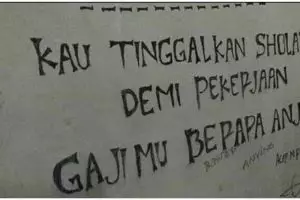 KAU TINGGALKAN SHOLA
DEMI PEKERJAAN
GAJIMU BERAPA ANJ